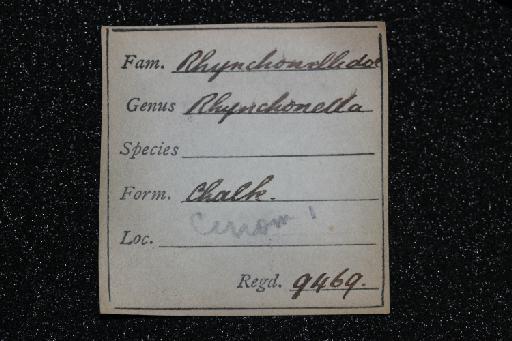 Fam. Rhynchonellidae
Genus Rhynchonella
Species
Form. Chalk.
Loc.
Regd. 9469.